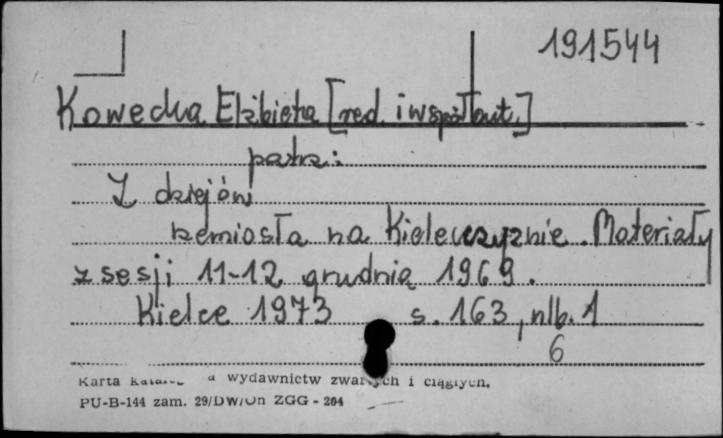 191544
Kowecka Elżbieta [red. i współaut.]
patrz:
Z dziejów
rzemiosła na Kielecczyźnie. Materiały
z sesji 11-12 grudnia 1969.
Kielce 1973 s. 163, nlb. 1
6
Karta wydawnictw zwartych i ciągłych.
PU-B-144 zam. 29/DW/On ZGG - 204